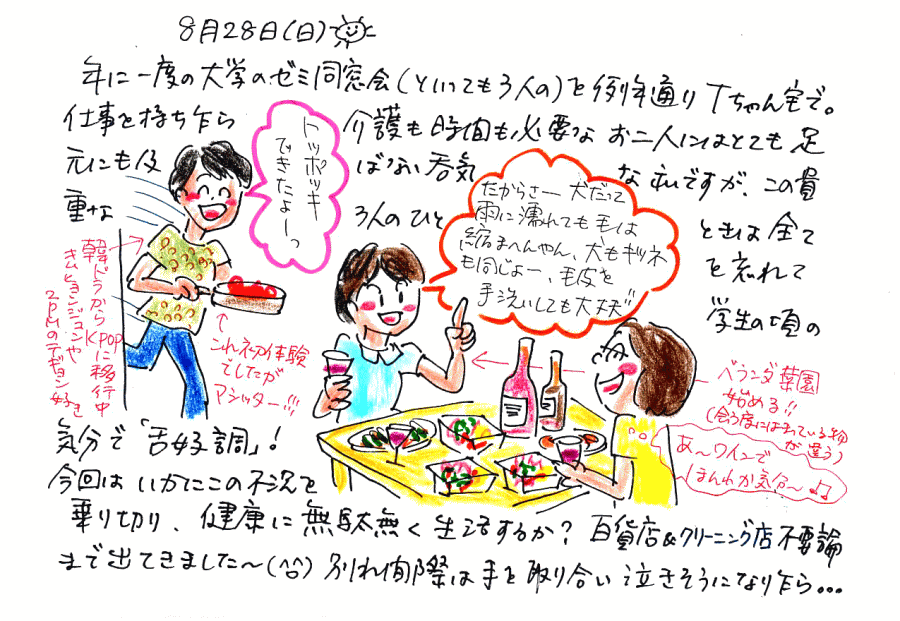 8月28日(日)
年に一度の大学のゼミ同窓会(といっても3人の)を例年通りTちゃん宅で。
仕事を持ち乍ら
介護も時間も必要な お二人にはとても足
元にも及
ばない呑気
な私ですが、この貴
重な
3人のひと
ときは全て
を忘れて
学生の頃の
気分で「舌好調」!
今回は いかにこの不況を
乗り切り、健康に無駄無く生活するか? 百貨店&クリーニング店不要論
まで出てきました〜(^○^) 別れ間際は手を取り合い泣きそうになり乍ら...
トッポッキ
できたよーっ
だからさー犬だって
雨に濡れても毛は
縮まへんやん、犬もキツネ
も同じよー、毛皮を
手洗いしても大丈夫"
韓ドラから
KPOPに移行中
キム・ヒョンジュンや
2PMのテギョン好き
これ初体験
でしたが
アシッター!!!
ベランダ菜園
始める!!
(会う度にはまっている物
が違う)
あ〜ワインで
ほんわか気分〜♪♪